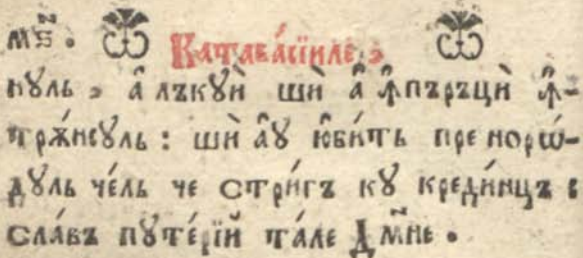 м҃ѕ. Катава́сїиле,
нꙋль, а҆̑ лъкꙋѝ шѝ а҆̑ ꙟ̑пъръцѝ ꙟ̑-
трѫ́нсꙋль: шѝ а҆̑ꙋ ю҆би́ть пре норѡ́-
дꙋль че́ль че стри́гъ кꙋ креди́нцъ :
сла́въ пꙋте́рїй та́ле Дм҃не.